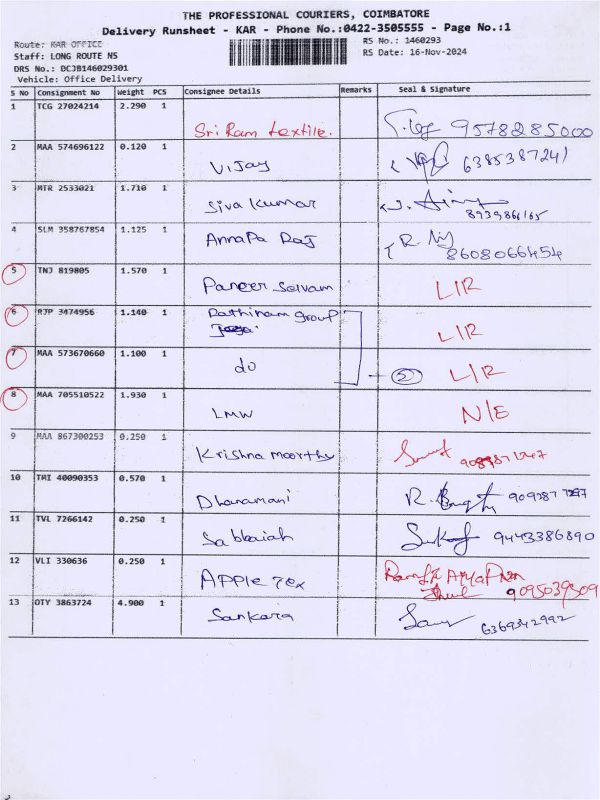 THE PROFESSIONAL COURIERS, COIMBATORE
Delivery Runsheet - KAR - Phone No.:0422-3505555 - Page No.:1
Route: KAR OFFICE
RS No.: 1460293
Staff: LONG ROUTE N5
RS Date: 16-Nov-2024
DRS No.: DCJB146029301
Vehicle: Office Delivery
S No Consignment No Weight PCS Consignee Details Remarks Seal & Signature
1 TCG 27024214 2.290 1 Sri Ram textile. 9578285000
2 MAA 574696122 0.120 1 Vijay 6385387241
3 MTR 2533021 1.710 1 Siva kumar 8939866165
4 SLM 358767854 1.125 1 AnnaPa Raj 8608066454
5 TNJ 819805 1.570 1 Paneer Selvam L/R
6 RJP 3474956 1.140 1 Rathinam group L/R
7 MAA 573670660 1.100 1 do 2 L/R
8 MAA 705510522 1.930 1 LMW N/E
9 MAA 867300253 0.250 1 Krishna moorthy
10 TMI 40090353 0.570 1 Dhanamani
11 TVL 7266142 0.250 1 Sabbaiah 9443386890
12 VLI 330636 0.250 1 APPle Tex 9095039509
13 OTY 3863724 4.900 1 Sankara 6369342992